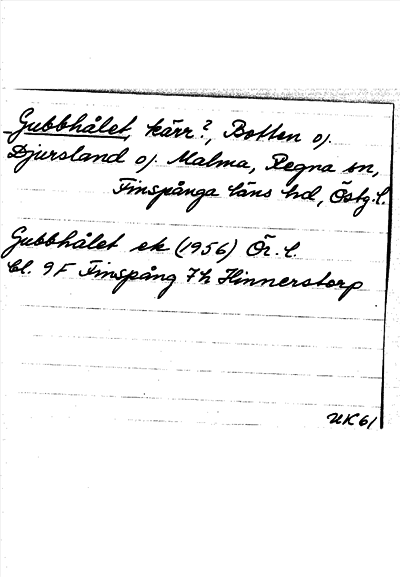 Gubbhålet, kärr?, Botten o).
Djursland o). Malma, Regna sn,
Finspånga läns hd, Östg. l.
Gubbhålet ek (1956) Ör. l.
bl. 9F Finspång 7h Hinnerstorp
UK61